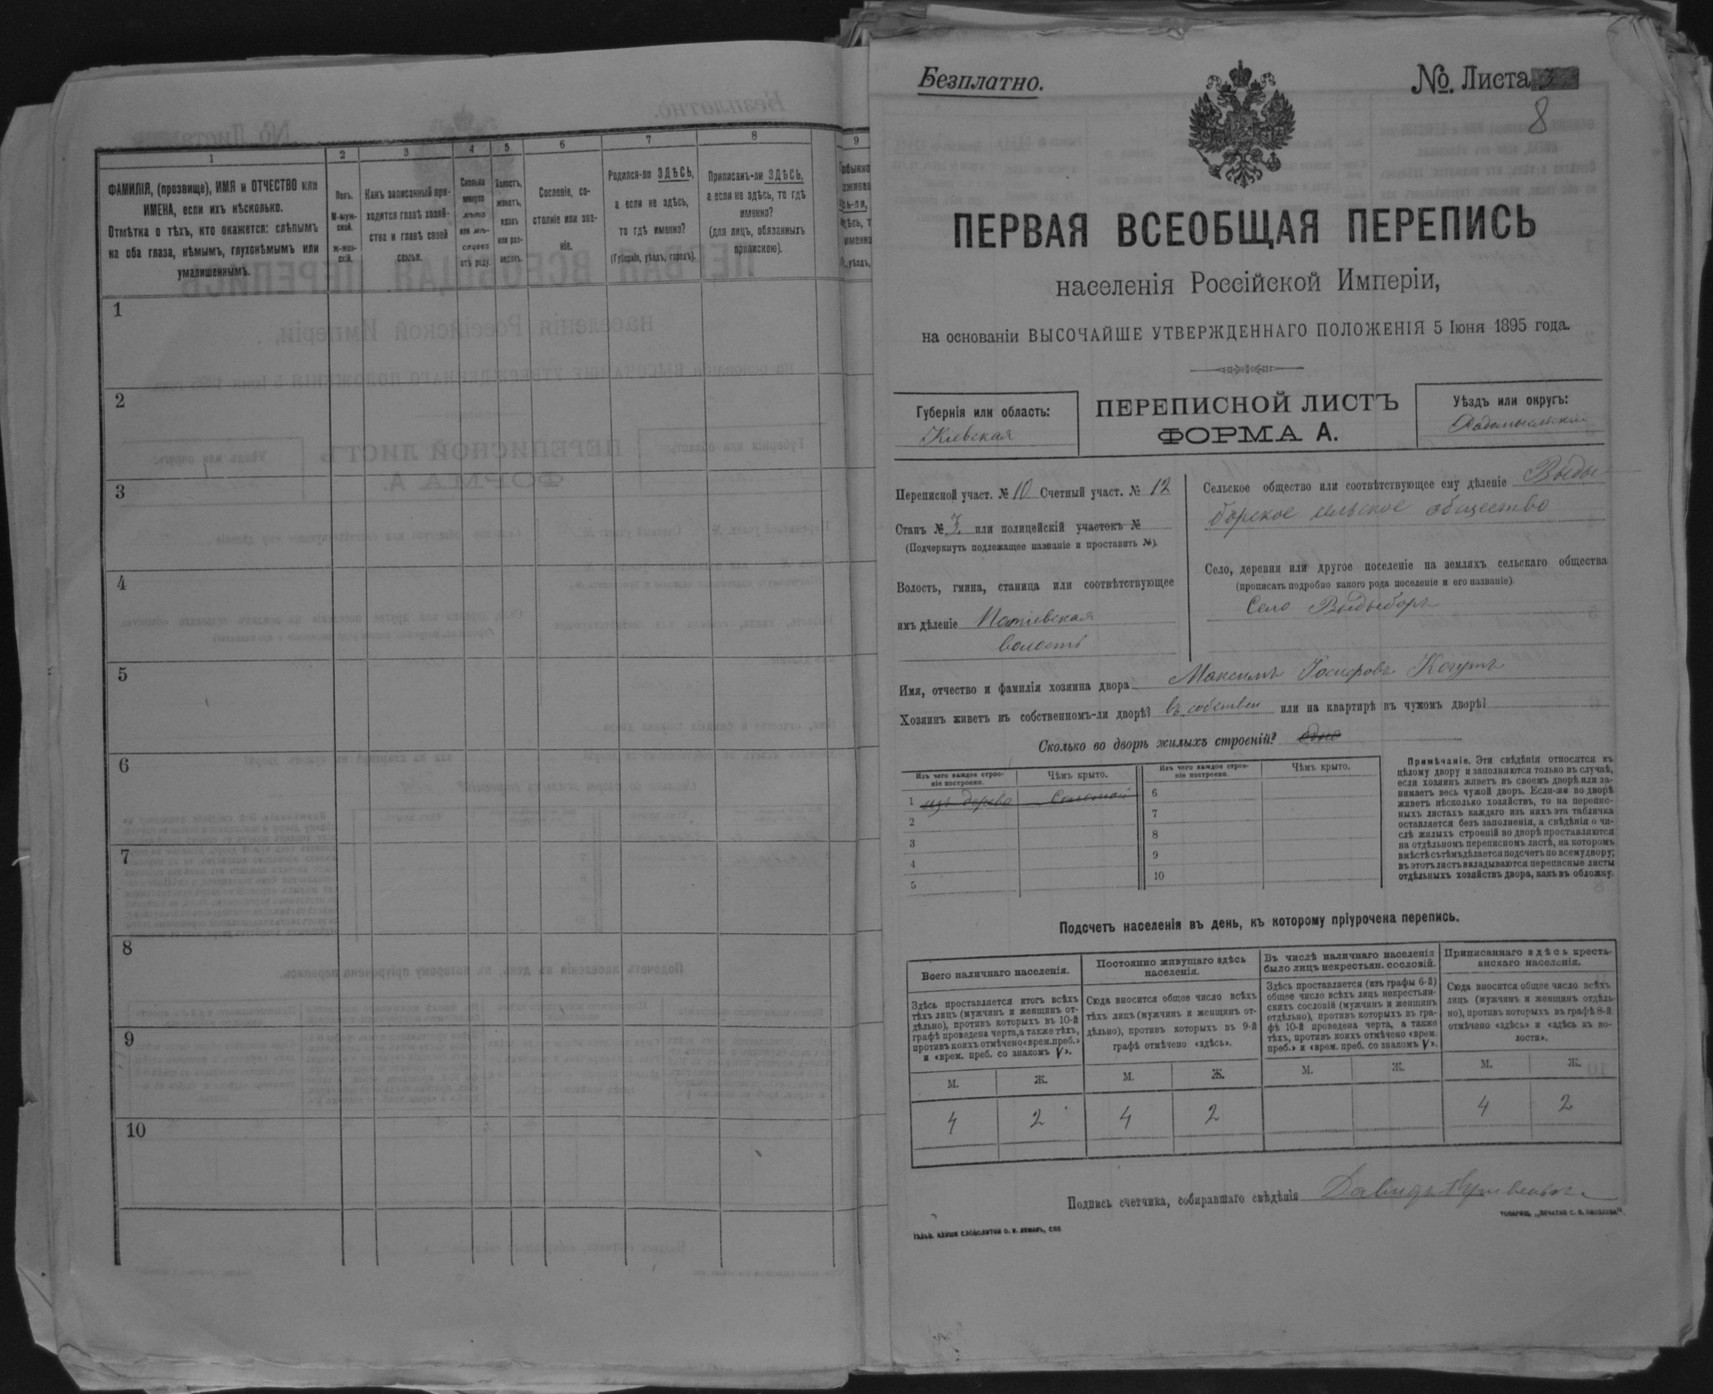 1
2
3
4
5
6
7
8
9
ФАМИЛІЯ, (прозвище), ИМЯ и ОТЧЕСТВО или
ИМЕНА, если ихъ нѣсколько.
Отмѣтка о тѣхъ, кто окажется: слѣпымъ
на оба глаза, нѣмымъ, глухонѣмымъ или
умалишеннымъ.
Полъ.
М-муж-
ской.
Ж-жен-
скій.
Какъ записанный при-
ходится главѣ хозяй-
ства и главѣ своей
семьи.
Сколько
минуло
лѣтъ
или мѣ-
сяцевъ
отъ роду.
Холостъ,
женатъ,
вдовъ
или раз-
веденъ.
Сословіе, со-
стояніе или зва-
ніе.
Родился-ли ЗДѢСЬ,
а если не здѣсь,
то гдѣ именно?
(Губернія, уѣздъ, городъ).
Приписанъ-ли ЗДѢСЬ,
а если не здѣсь, то гдѣ
именно?
(для лицъ, обязанныхъ
припискою).
1
2
3
4
5
6
7
8
9
10
Безплатно.
№ Листа
8
ПЕРВАЯ ВСЕОБЩАЯ ПЕРЕПИСЬ
населенія Россійской Имперіи,
на основаніи ВЫСОЧАЙШЕ УТВЕРЖДЕННАГО ПОЛОЖЕНІЯ 5 Іюня 1895 года.
Губернія или область:
Кіевская
ПЕРЕПИСНОЙ ЛИСТЪ
ФОРМА А.
Уѣздъ или округъ:
Радомысльскій
Переписной участ. № 10 Счетный участ. № 12
Станъ № 3. или полицейскій участокъ №
(Подчеркнуть подлежащее названіе и проставить №).
Волость, гмина, станица или соотвѣтствующее
имъ дѣленіе
волость
Сельское общество или соотвѣтствующее ему дѣленіе Выды-
борское сельское общество
Село, деревня или другое поселеніе на земляхъ сельскаго общества
(прописать подробно какого рода поселеніе и его названіе)
Село Выдыборъ
Имя, отчество и фамилія хозяина двора Максимъ Іосифовъ Когутъ
Хозяинъ живетъ въ собственномъ-ли дворѣ? въ собствен или на квартирѣ въ чужомъ дворѣ?
Сколько во дворѣ жилыхъ строеній? одно
Изъ чего каждое строе-
ніе построено.
Чѣмъ крыто.
Изъ чего каждое строе-
ніе построено.
Чѣмъ крыто.
1 изъ дерева Соломой
2
3
4
5
6
7
8
9
10
Примѣчаніе. Эти свѣдѣнія относятся къ
цѣлому двору и заполняются только въ случаѣ,
если хозяинъ живетъ въ своемъ дворѣ или за-
нимаетъ весь чужой дворъ. Если-же во дворѣ
живетъ нѣсколько хозяйствъ, то на перепис-
ныхъ листахъ каждаго изъ нихъ эта табличка
оставляется безъ заполненія, а свѣдѣнія о чи-
слѣ жилыхъ строеній во дворѣ проставляются
на отдѣльномъ переписномъ листѣ, на которомъ
вмѣстѣ съ тѣмъ дѣлается подсчетъ по всему двору;
въ этотъ листъ вкладываются переписные листы
отдѣльныхъ хозяйствъ двора, какъ въ обложку.
Подсчетъ населенія въ день, къ которому пріурочена перепись.
Всего наличнаго населенія.
Здѣсь проставляется итогъ всѣхъ
тѣхъ лицъ (мужчинъ и женщинъ от-
дѣльно), противъ которыхъ въ 10-й
графѣ проведена черта, а также тѣхъ,
противъ коихъ отмѣчено «врем. преб.»
и «врем. преб. со знакомъ V».
Постоянно живущаго здѣсь
населенія.
Сюда вносится общее число всѣхъ
тѣхъ лицъ (мужчинъ и женщинъ от-
дѣльно), противъ которыхъ въ 9-й
графѣ отмѣчено «здѣсь».
Въ числѣ наличнаго населенія
было лицъ некрестьян. сословій.
Здѣсь проставляется (изъ графы 6-й)
общее число всѣхъ лицъ некрестьян-
скихъ сословій (мужчинъ и женщинъ
отдѣльно), противъ которыхъ въ гра-
фѣ 10-й проведена черта, а также
тѣхъ, противъ коихъ отмѣчено «врем.
преб.» и «врем. преб. со знакомъ V».
Приписаннаго здѣсь кресть-
янскаго населенія.
Сюда вносится общее число всѣхъ
лицъ (мужчинъ и женщинъ отдѣль-
но), противъ которыхъ въ графѣ 8-й
отмѣчено «здѣсь» и «здѣсь въ во-
лости».
М. Ж. М. Ж. М. Ж. М. Ж.
4 2 4 2 4 2
Подпись счетчика, собиравшаго свѣдѣнія Давидъ